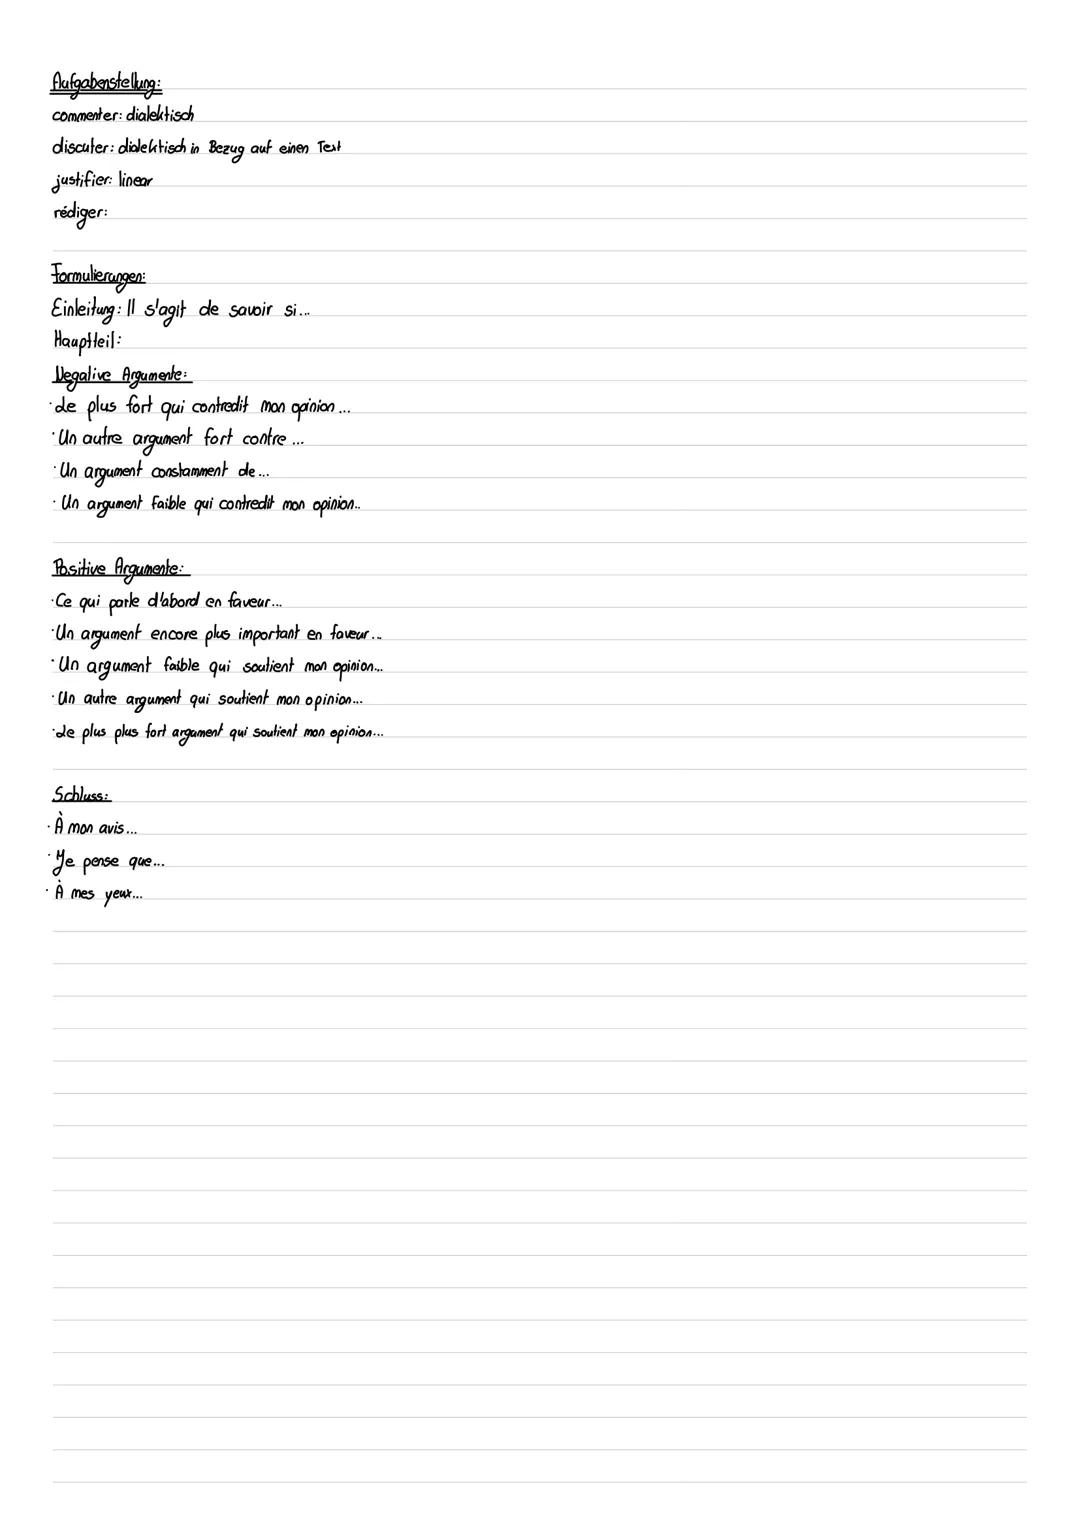 Aufgabenstellung:
commenter: dialektisch
discuter: dialektisch in Bezug auf einen Text
justifier: linear
rédiger:
Formulierungen:
Einleitung: Il s'agit de savoir si...
Hauptteil:
Negative Argumente:
·Le plus fort qui contredit mon opinion...
·Un autre argument fort contre ...
·Un argument constamment de...
·Un argument faible qui contredit mon opinion..
Positive Argumente:
·Ce qui parle d'abord en faveur...
·Un argument encore plus important en faveur...
·Un argument faible qui soutient mon opinion...
·Un autre argument qui soutient mon opinion...
·Le plus plus fort argument qui soutient mon opinion...
Schluss:
·À mon avis...
·Je pense que...
·À mes yeux...